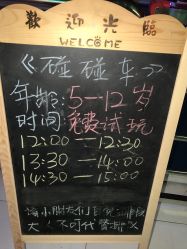 歡迎光臨
WELCOME
《碰碰车》
年龄:5—12岁
时间:免费试玩
12:00 — 12:30
13:30 — 14:00
14:30 — 15:00
请小朋友们自觉排队
大人不可代替排队